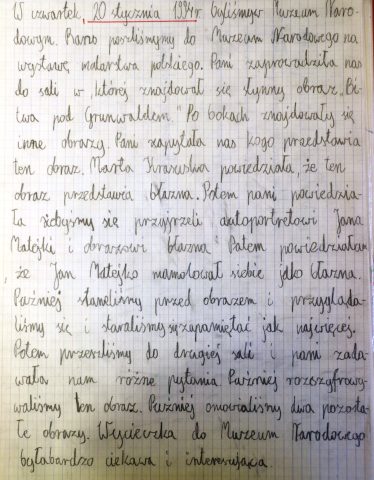 W czwartek, 20 stycznia 1994 r. byliśmy w Muzeum Naro-
dowym. Rano poszliśmy do Muzeum Narodowego na
wystawę malarstwa polskiego. Pani zaprowadziła nas
do sali w której znajdował się słynny obraz „Bi-
twa pod Grunwaldem." Po bokach znajdowały się
inne obrazy. Pani zapytała nas kogo przedstawia
ten obraz. Marta powiedziała, że ten
obraz przedstawia błazna. Potem pani powiedzia-
ła żebyśmy się przyjrzeli autoportretowi Jana
Matejki i obrazowi błazna. Potem powiedziałam
że Jan Matejko namalował siebie jako błazna.
Puźniej staneliśmy przed obrazem i przygląda-
liśmy się i staraliśmy się zapamiętać jak najwięcej.
Potem przeszliśmy do drugiej sali i pani zada-
wała nam rożne pytania. Puźniej rozszyfrowy-
waliśmy ten obraz. Puźniej omowialiśmy dwa pozosta-
łe obrazy. Wycieczka do Muzeum Narodowego
była bardzo ciekawa i interesująca.